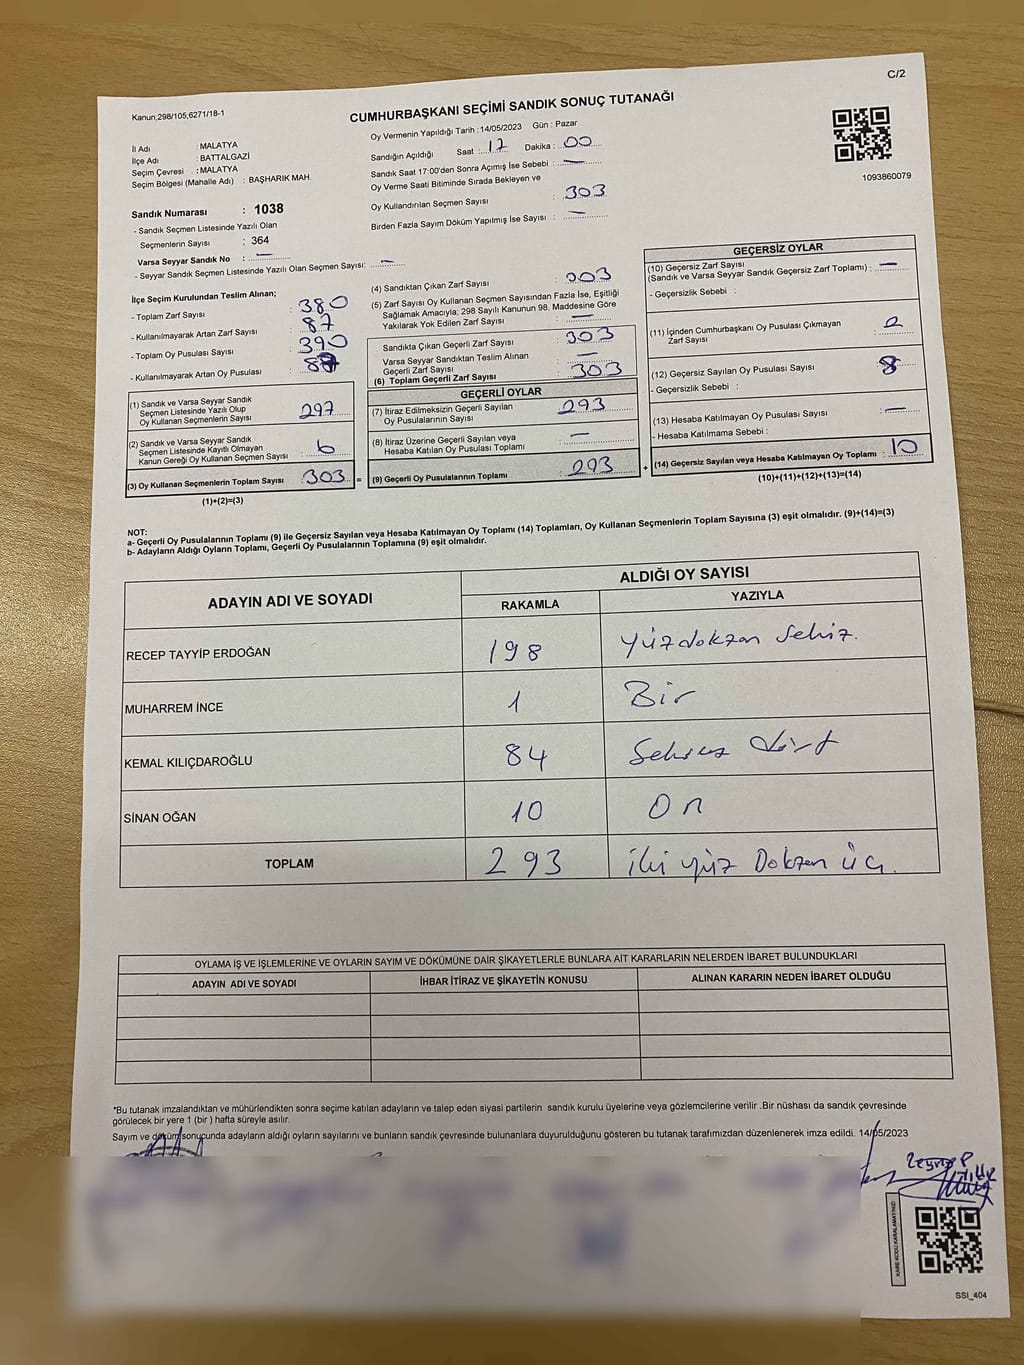 C/2
Kanun,298/105,6271/18-1
CUMHURBAŞKANI SEÇİMİ SANDIK SONUÇ TUTANAĞI
İl Adı : MALATYA
İlçe Adı : BATTALGAZİ
Seçim Çevresi : MALATYA
Seçim Bölgesi (Mahalle Adı) : BAŞHARIK MAH.
Sandık Numarası : 1038
- Sandık Seçmen Listesinde Yazılı Olan
Seçmenlerin Sayısı : 364
Varsa Seyyar Sandık No : —
- Seyyar Sandık Seçmen Listesinde Yazılı Olan Seçmen Sayısı: —
Oy Vermenin Yapıldığı Tarih : 14/05/2023 Gün : Pazar
Sandığın Açıldığı Saat : 17 Dakika : 00
Sandık Saat 17:00'den Sonra Açımış İse Sebebi : —
Oy Verme Saati Bitiminde Sırada Bekleyen ve
Oy Kullandırılan Seçmen Sayısı : 303
Birden Fazla Sayım Döküm Yapılmış İse Sayısı : —
1093860079
İlçe Seçim Kurulundan Teslim Alınan;
- Toplam Zarf Sayısı : 380
- Kullanılmayarak Artan Zarf Sayısı : 87
- Toplam Oy Pusulası Sayısı : 390
- Kullanılmayarak Artan Oy Pusulası :
(1) Sandık ve Varsa Seyyar Sandık
Seçmen Listesinde Yazılı Olup
Oy Kullanan Seçmenlerin Sayısı : 297
(2) Sandık ve Varsa Seyyar Sandık
Seçmen Listesinde Kayıtlı Olmayan
Kanun Gereği Oy Kullanan Seçmen Sayısı : 6
(3) Oy Kullanan Seçmenlerin Toplam Sayısı : 303 =
(1)+(2)=(3)
(4) Sandıktan Çıkan Zarf Sayısı : 303
(5) Zarf Sayısı Oy Kullanan Seçmen Sayısından Fazla İse, Eşitliği
Sağlamak Amacıyla; 298 Sayılı Kanunun 98. Maddesine Göre
Yakılarak Yok Edilen Zarf Sayısı : —
Sandıkta Çıkan Geçerli Zarf Sayısı : 303
Varsa Seyyar Sandıktan Teslim Alınan
Geçerli Zarf Sayısı : —
(6) Toplam Geçerli Zarf Sayısı : 303
GEÇERLİ OYLAR
(7) İtiraz Edilmeksizin Geçerli Sayılan
Oy Pusulalarının Sayısı : 293
(8) İtiraz Üzerine Geçerli Sayılan veya
Hesaba Katılan Oy Pusulası Toplamı : —
(9) Geçerli Oy Pusulalarının Toplamı : 293 +
GEÇERSİZ OYLAR
(10) Geçersiz Zarf Sayısı
(Sandık ve Varsa Seyyar Sandık Geçersiz Zarf Toplamı) : —
- Geçersizlik Sebebi :
(11) İçinden Cumhurbaşkanı Oy Pusulası Çıkmayan
Zarf Sayısı : 2
(12) Geçersiz Sayılan Oy Pusulası Sayısı : 8
- Geçersizlik Sebebi :
(13) Hesaba Katılmayan Oy Pusulası Sayısı : —
- Hesaba Katılmama Sebebi :
(14) Geçersiz Sayılan veya Hesaba Katılmayan Oy Toplamı : 10
(10)+(11)+(12)+(13)=(14)
NOT:
a- Geçerli Oy Pusulalarının Toplamı (9) ile Geçersiz Sayılan veya Hesaba Katılmayan Oy Toplamı (14) Toplamları, Oy Kullanan Seçmenlerin Toplam Sayısına (3) eşit olmalıdır. (9)+(14)=(3)
b- Adayların Aldığı Oyların Toplamı, Geçerli Oy Pusulalarının Toplamına (9) eşit olmalıdır.
ADAYIN ADI VE SOYADI
ALDIĞI OY SAYISI
RAKAMLA YAZIYLA
RECEP TAYYİP ERDOĞAN 198 Yüzdokzan Sekiz.
MUHARREM İNCE 1 Bir
KEMAL KILIÇDAROĞLU 84 Seksen dört
SİNAN OĞAN 10 On
TOPLAM 293 iki yüz Dokzan üç.
OYLAMA İŞ VE İŞLEMLERİNE VE OYLARIN SAYIM VE DÖKÜMÜNE DAİR ŞİKAYETLERLE BUNLARA AİT KARARLARIN NELERDEN İBARET BULUNDUKLARI
ADAYIN ADI VE SOYADI İHBAR İTİRAZ VE ŞİKAYETİN KONUSU ALINAN KARARIN NEDEN İBARET OLDUĞU
*Bu tutanak imzalandıktan ve mühürlendikten sonra seçime katılan adayların ve talep eden siyasi partilerin sandık kurulu üyelerine veya gözlemcilerine verilir .Bir nüshası da sandık çevresinde
görülecek bir yere 1 (bir ) hafta süreyle asılır.
Sayım ve döküm sonucunda adayların aldığı oyların sayılarını ve bunların sandık çevresinde bulunanlara duyurulduğunu gösteren bu tutanak tarafımızdan düzenlenerek imza edildi. 14/05/2023
KARE KODU KARALAMAYINIZ!
SSI_404